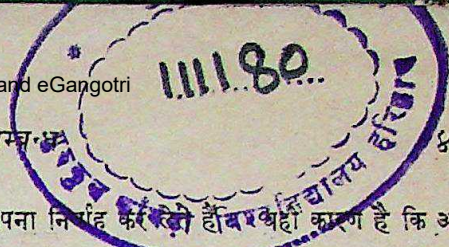 and eGangotri
111180
म्बन्ध
गुरुकुल विश्वविद्यालय हरिद्वार
पना निर्वाह कर लेते हैं यही कारण है कि अ